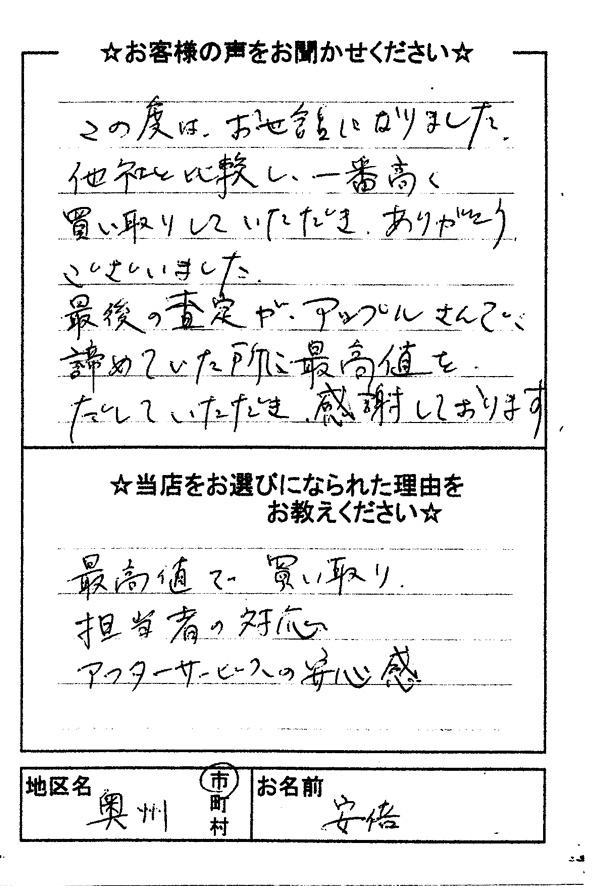 ☆お客様の声をお聞かせください☆
この度は、お世話になりました。
他社と比較し、一番高く
買い取りしていただき、ありがとう
ございました。
最後の査定が、アップルさんで、
諦めていた所に最高値を
だしていただき、感謝しております
☆当店をお選びになられた理由を
お教えください☆
最高値で買い取り、
担当者の対応
アフターサービスの安心感
地区名 奥州 市町村 お名前 安倍